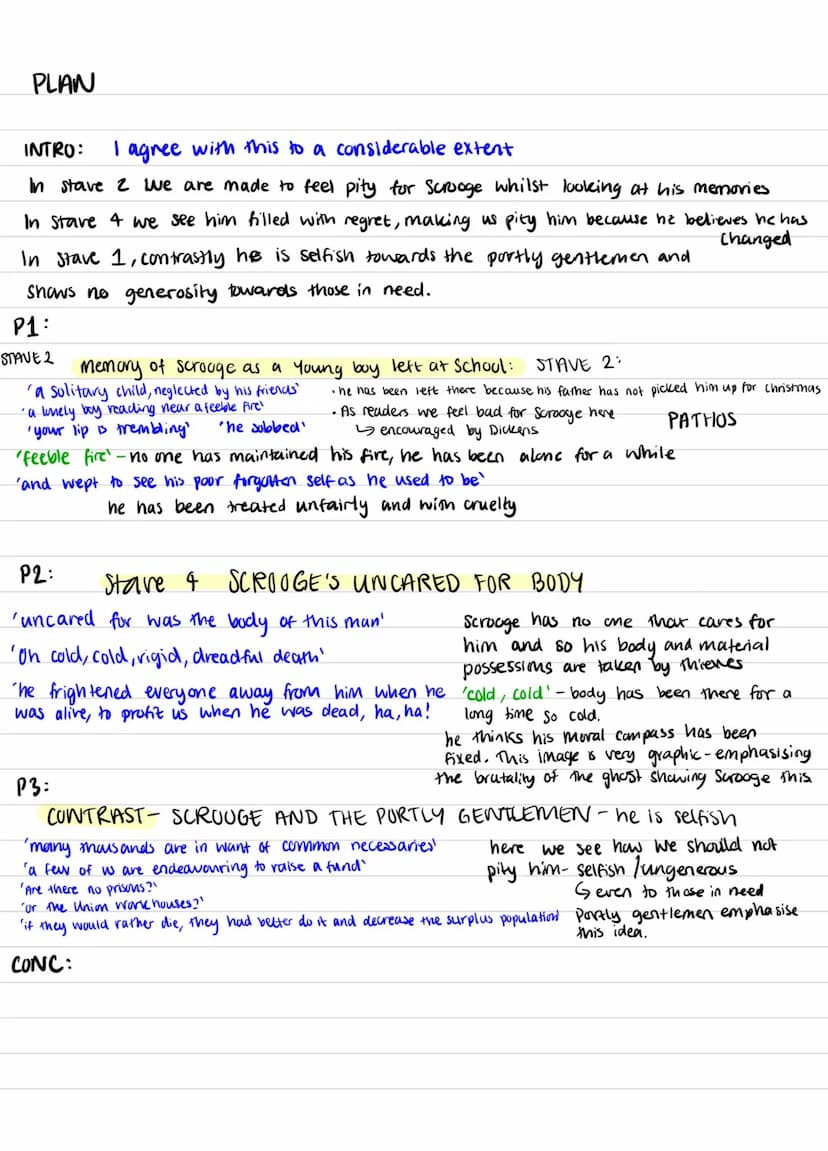 PLAN
INTRO: I agree with this to a considerable extent
In stave 2 we are made to feel pity for Scrooge whilst looking at his memories
In stave 4 we see him filled with regret, making us pity him because he believes he has
changed
In stave 1, contrastly he is selfish towards the portly gentlemen and
shows no generosity towards those in need.
P1:
STAVE 2 Memory of scrooge as a young boy left at school: STAVE 2:
'a solitary child, neglected by his friends' · he has been left there because his father has not picked him up for christmas
'a lonely boy reading near a feeble fire' · As readers we feel bad for Scrooge here PATHOS
'your lip is trembling' 'he sobbed' ↳ encouraged by Dickens
'feeble fire' - no one has maintained his fire, he has been alone for a while
'and wept to see his poor forgotten self as he used to be'
he has been treated unfairly and with cruelty
P2: Stave 4 SCROOGE'S UNCARED FOR BODY
'uncared for was the body of this man' Scrooge has no one that cares for
him and so his body and material
'Oh cold, cold, rigid, dreadful death' possessions are taken by thieves
'he frightened everyone away from him when he 'cold, cold' - body has been there for a
was alive, to profit us when he was dead, ha, ha! long time so cold.
he thinks his moral compass has been
fixed. This image is very graphic - emphasising
the brutality of the ghost showing Scrooge this
P3:
CONTRAST - SCROOGE AND THE PORTLY GENTLEMEN - he is selfish
'many thousands are in want of common necessaries' here we see how we should not
'a few of us are endeavouring to raise a fund' pity him - selfish / ungenerous
'Are there no prisons?' ↳ even to those in need
'or the Union workhouses?' Portly gentlemen emphasise
'if they would rather die, they had better do it and decrease the surplus population' this idea.
CONC: